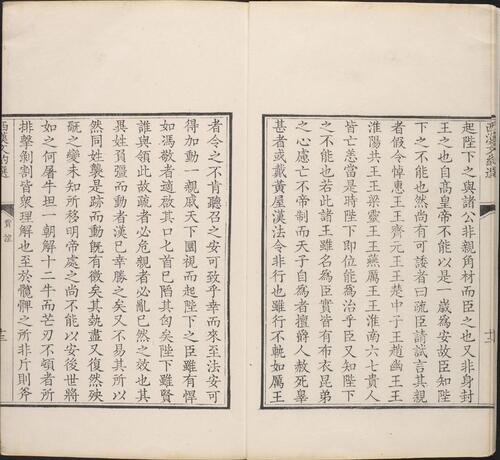 西漢文約選
起陛下之與諸公非親角材而臣之也又非身封
王之也自高皇帝不能以是一歲為安故臣知陛
下之不能也然尚有可諉者曰疏臣請試言其親
者假令悼惠王王齊元王王楚中子王趙幽王王
淮陽共王王梁靈王王燕厲王王淮南六七貴人
皆亡恙當是時陛下即位能為治乎臣又知陛下
之不能也若此諸王雖名為臣實皆有布衣昆弟
之心慮亡不帝制而天子自為者擅爵人赦死辠
甚者或戴黃屋漢法令非行也雖行不軌如厲王
者令之不肯聽召之安可致乎幸而來至法安可
得加動一親戚天下圜視而起陛下之臣雖有悍
如馮敬者適啟其口匕首已陷其匈矣陛下雖賢
誰與領此故疏者必危親者必亂已然之效也其
異姓負彊而動者漢已幸勝之矣又不易其所以
然同姓襲是跡而動既有徵矣其埶盡又復然殃
旤之變未知所移明帝處之尚不能以安後世將
如之何屠牛坦一朝解十二牛而芒刃不頓者所
排擊剝割皆衆理解也至於髖髀之所非斤則斧
西漢文約選
賈誼
十三